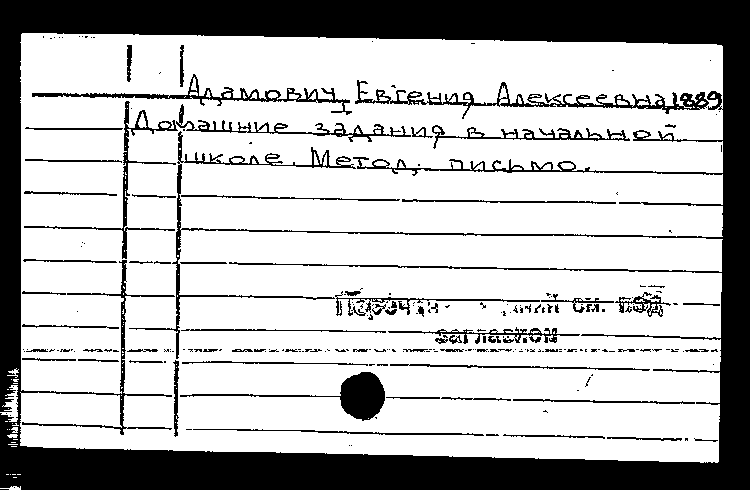 Адамович, Евгения Алексеевна, 1889
I
Домашние задания в начальной
школе. Метод. письмо.
см. под
заглавием